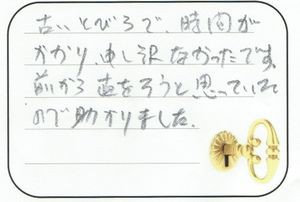 古いとびらで、時間が
かかり、申し訳なかったです。
前から直そうと思っていた
ので助かりました。